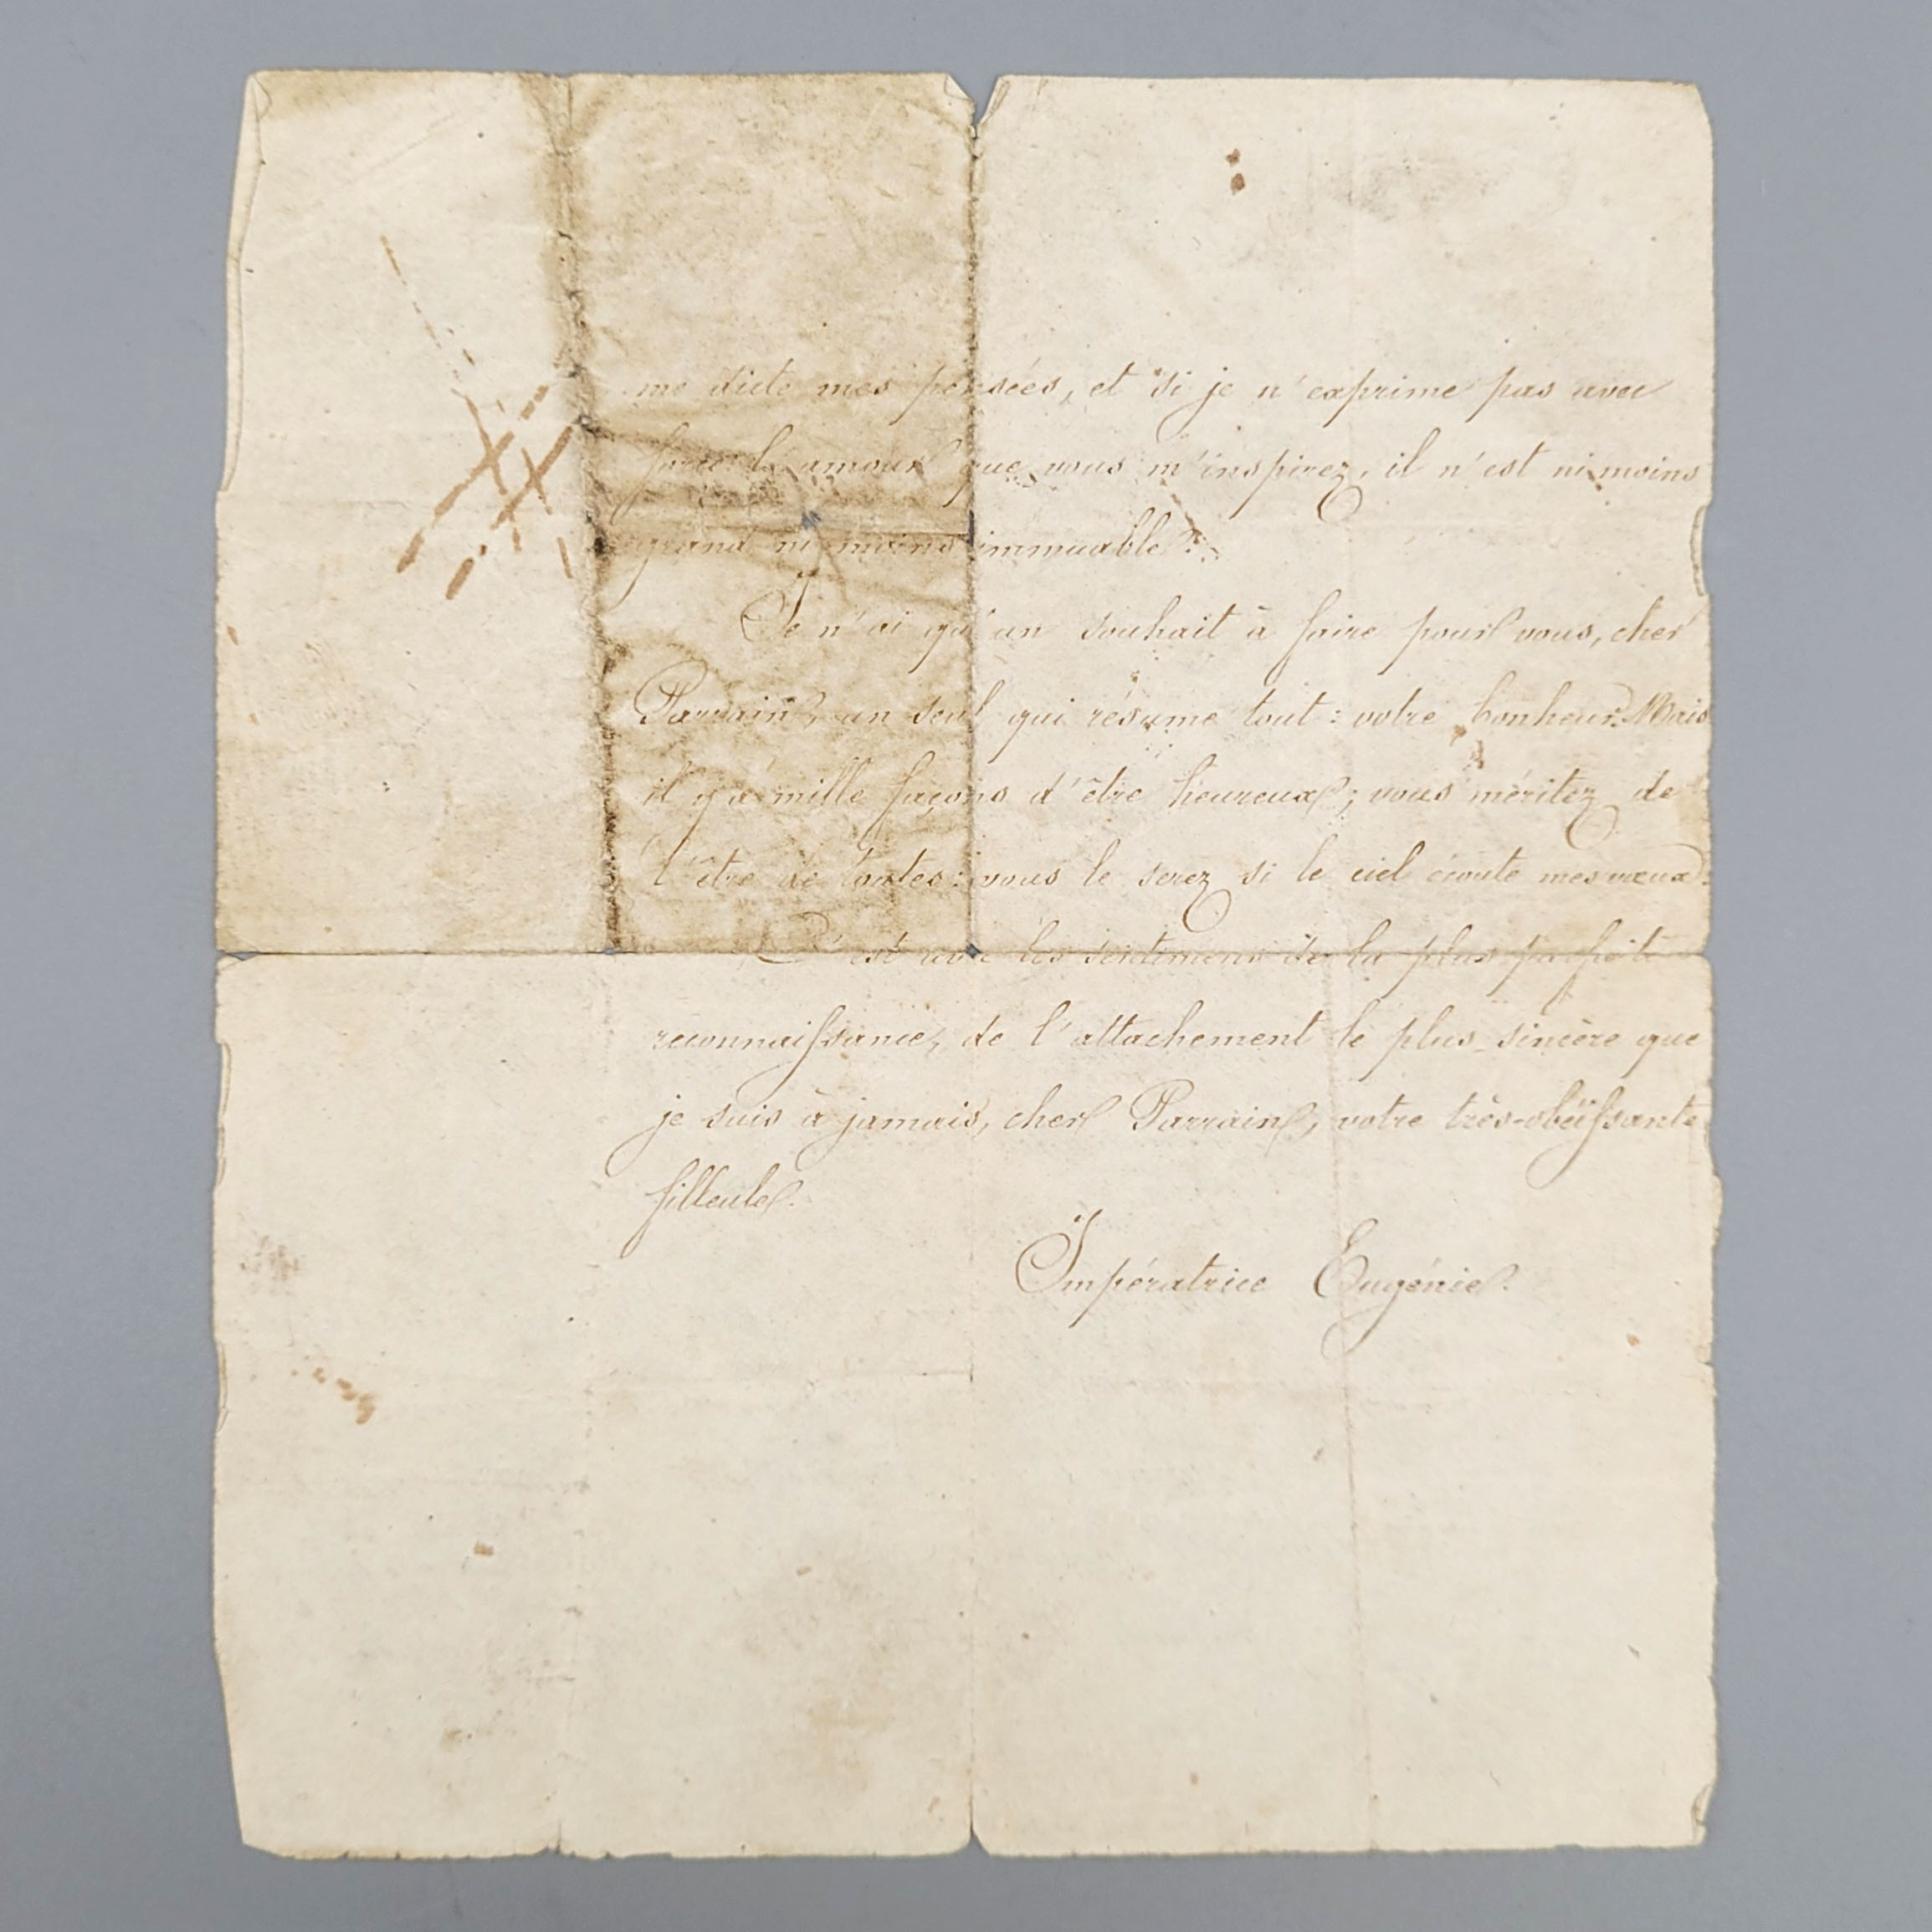 me dicte mes pensées, et si je n'exprime pas avec
force l'amour que vous m'inspirez, il n'est ni moins
grand ni moins immuable.
Je n'ai qu'un souhait à faire pour vous, cher
Parrain, un seul qui résume tout : votre bonheur. Mais
il y a mille façons d'être heureux ; vous méritez de
l'être de toutes : vous le serez si le ciel écoute mes vœux.
C'est avec les sentimens de la plus parfaite
reconnaissance, de l'attachement le plus sincère que
je suis à jamais, cher Parrain, votre très-obéissante
filleule.
Impératrice Eugénie.